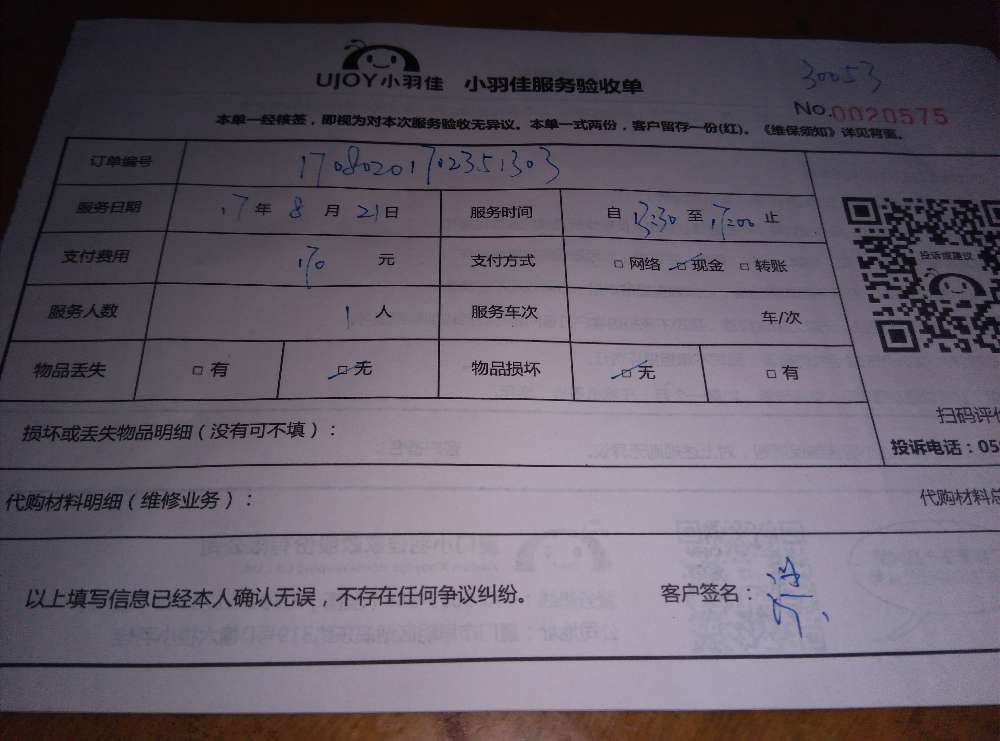 30053
UJOY小羽佳 小羽佳服务验收单
No.0020575
本单一经核签，即视为对本次服务验收无异议。本单一式两份，客户留存一份(红)。《维保须知》详见背面。
订单编号 17080201702351303
服务日期 17年8月21日 服务时间 自13:30至17:00止
支付费用 170元 支付方式 □网络 ☑现金 □转账
投诉或建议
服务人数 1人 服务车次 车/次
物品丢失 □有 ☑无 物品损坏 ☑无 □有
扫码评价
损坏或丢失物品明细（没有可不填）：
投诉电话：05
代购材料明细（维修业务）： 代购材料总
以上填写信息已经本人确认无误，不存在任何争议纠纷。 客户签名：